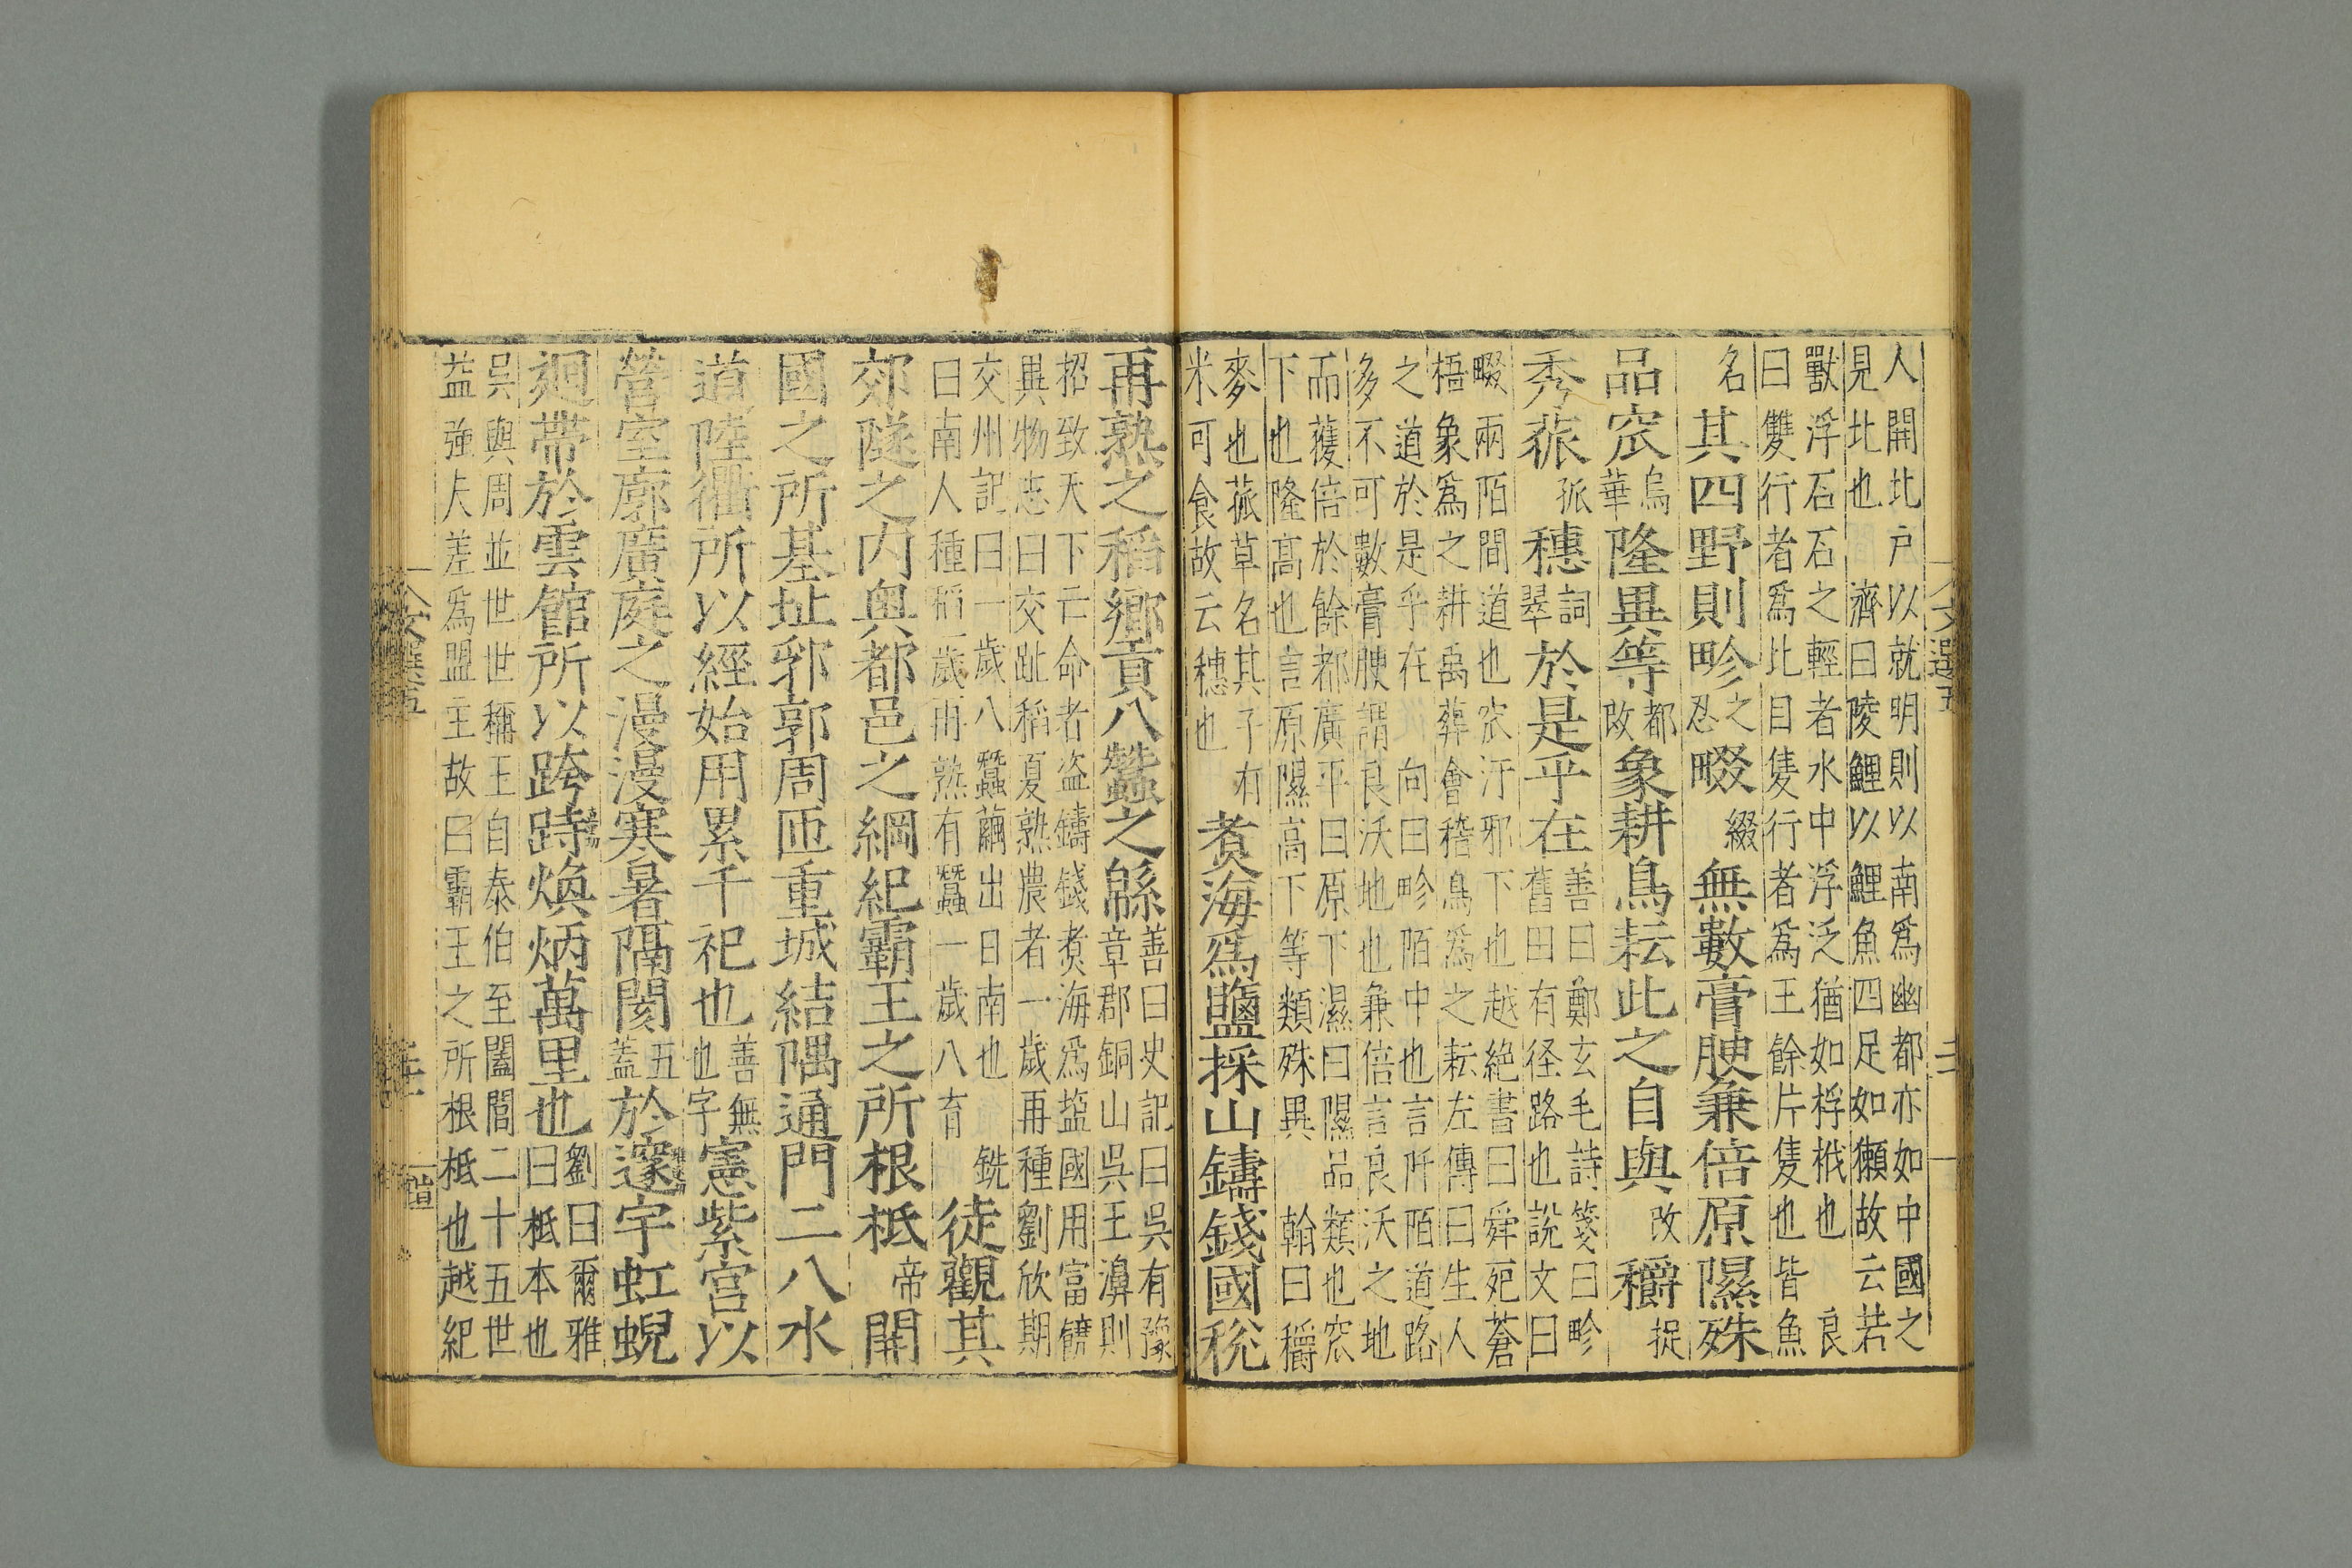 人開北戶以就明則以南爲幽都亦如中國之
見北也 濟曰陵鯉以鯉魚四足如獺故云若
獸浮石石之輕者水中浮泛猶如桴栰也 良
曰雙行者爲比目隻行者爲王餘片隻也皆魚
名其四野則畛之忍畷綴無數膏腴兼倍原隰殊
品窊烏華隆異等都改象耕鳥耘此之自與改穱捉
秀菰孤穗詞翠於是乎在善曰鄭玄毛詩箋曰畛
舊田有径路也說文曰
畷兩陌間道也窊汙邪下也越絕書曰舜死蒼
梧象爲之耕禹葬會稽鳥爲之耘左傳曰生人
之道於是乎在 向曰畛陌中也言阡陌道路
多不可數膏腴謂良沃地也兼倍言良沃之地
而獲倍於餘都廣平曰原下濕曰隰品類也窊
下也隆高也言原隰高下等類殊異 翰曰穱
麥也菰草名其子有
米可食故云穗也
煑海爲鹽採山鑄錢國稅
再熟之稻鄉貢八蠶之緜善曰史記曰吳有豫
章郡銅山吳王濞則
招致天下亡命者盗鑄錢煑海爲塩國用富饒
異物志曰交趾稻夏熟農者一歲再種劉欣期
交州記曰一歲八蠶繭出日南也 銑
曰南人種稻一歲再熟有蠶一歲八育
徒觀其
郊隧之内奥都邑之綱紀霸王之所根柢帝開
國之所基址郛郭周匝重城結隅通門二八水
道陸衢所以經始用累千祀也善無
也字憲紫宮以
營室廓廣庭之漫漫寒暑隔閡五
蓋於邃宇虹蜺
廻帶於雲館所以跨跱煥炳萬里也劉曰爾雅
曰柢本也
吳與周並世世稱王自泰伯至闔閭二十五世
益強夫差爲盟主故曰霸王之所根柢也越紀